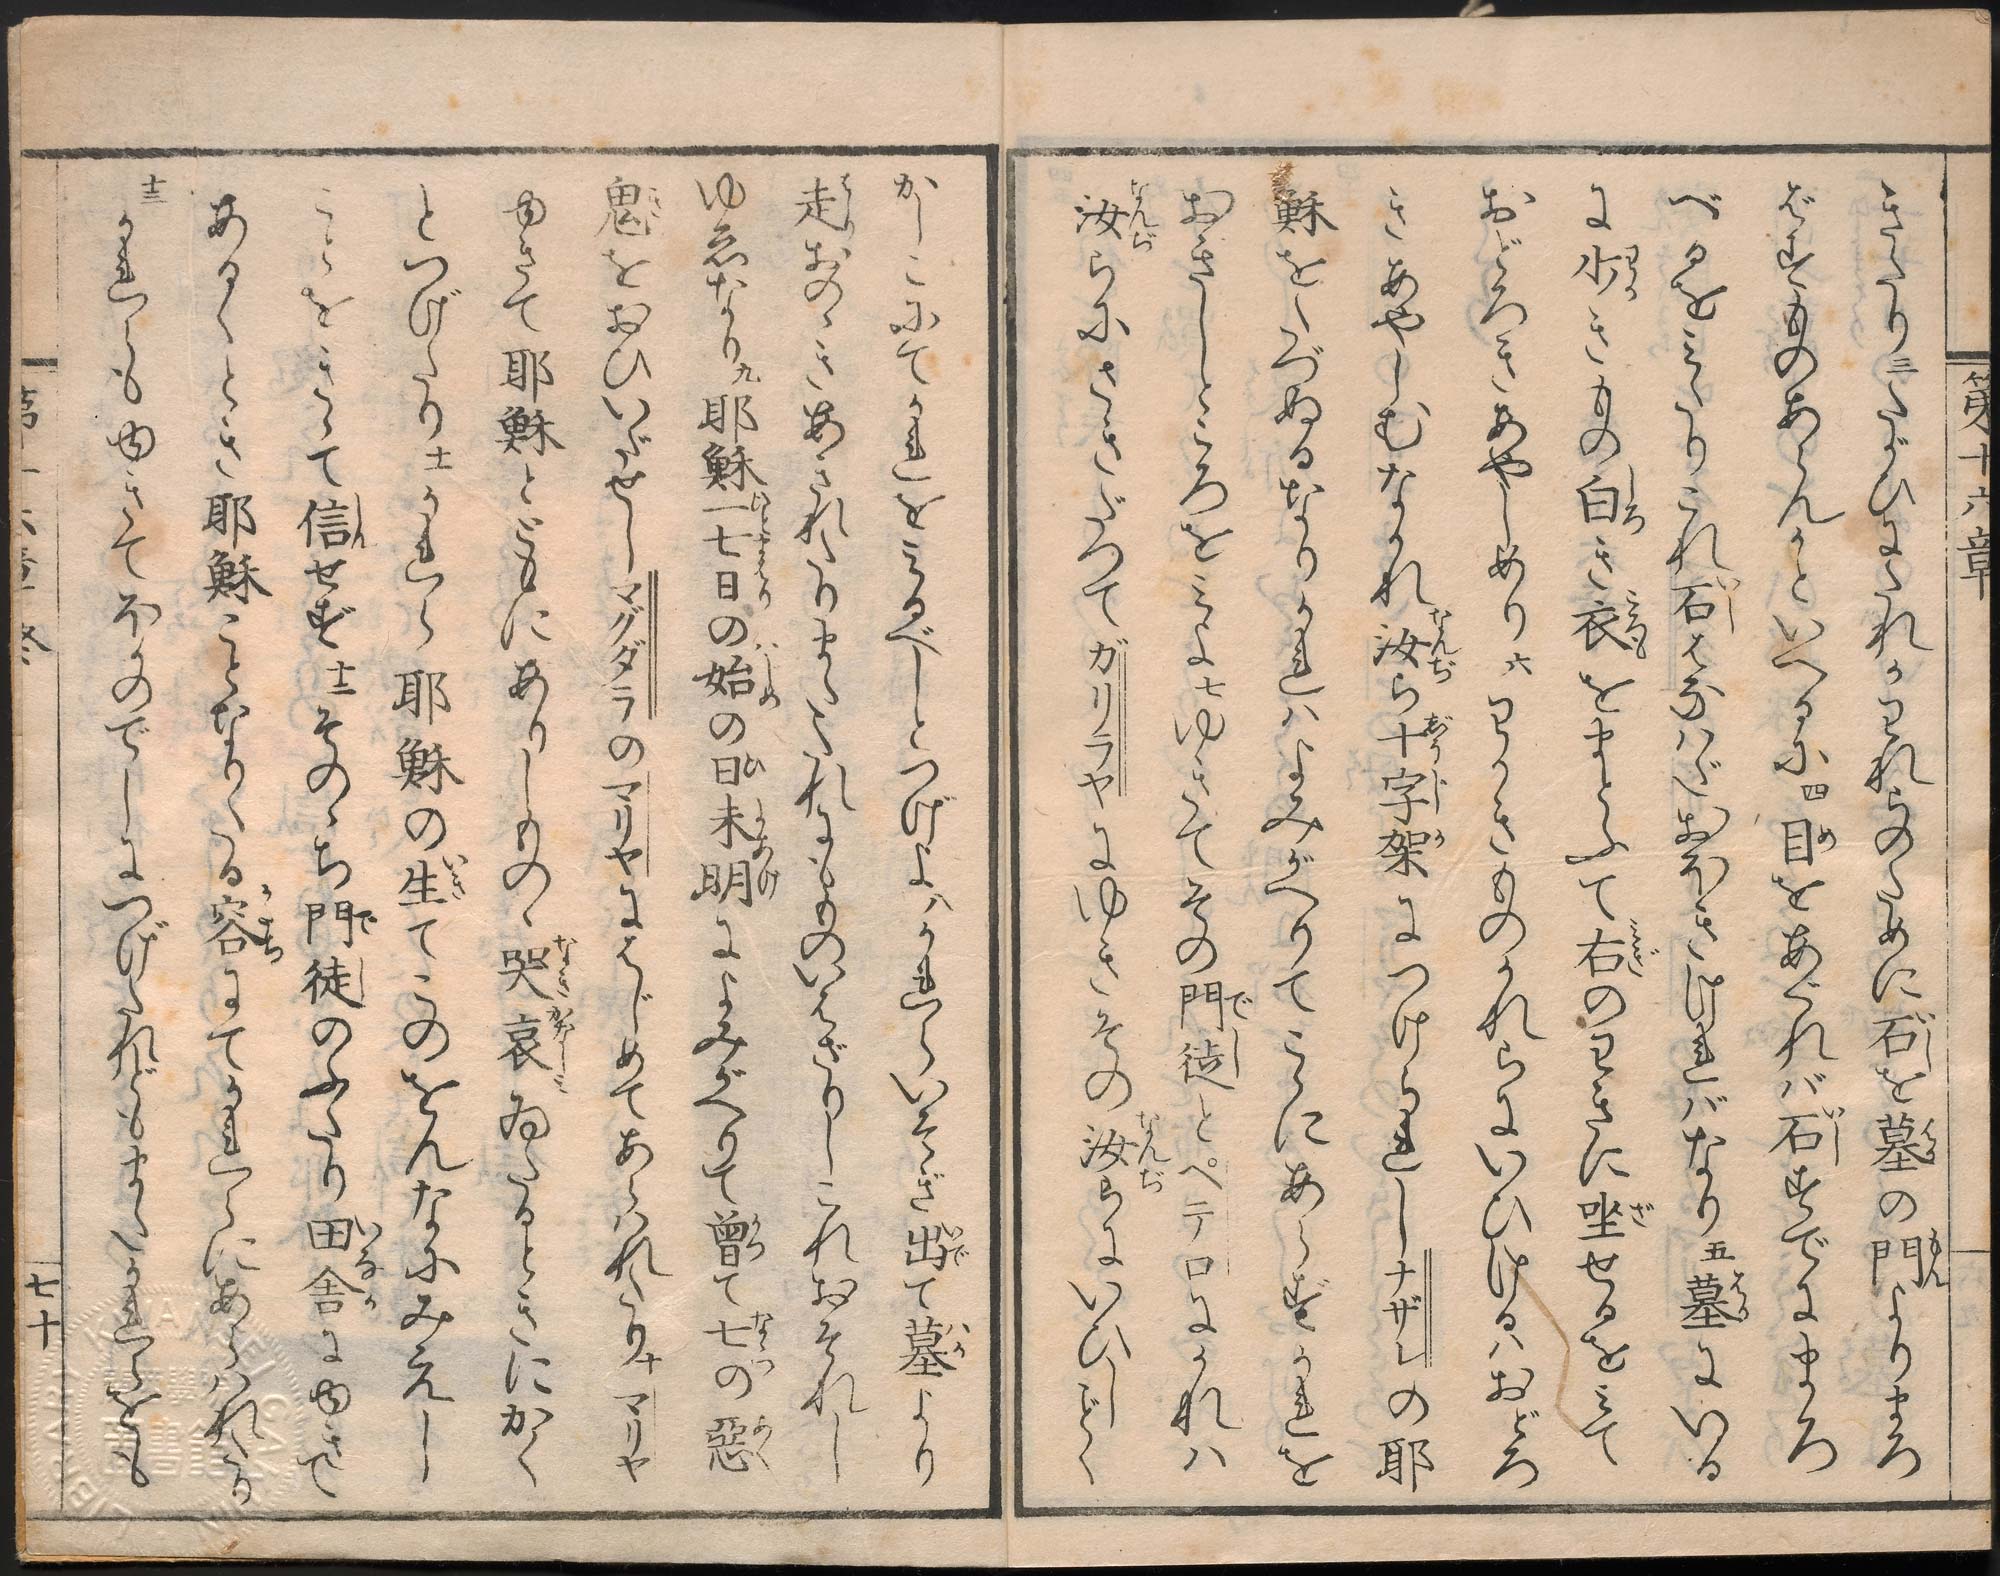 第十六章
きたり三たがひにたれかわれらのために石を墓の門よりまろ
ばすものあらんかといへるに四目をあぐれバ石すでにまろ
べるをみたりこれ石はなハだおほきけれバなり五墓にいる
に少きもの白き衣をまとふて右のわきに坐せるをみて
おどろきあやしめり六わかきものかれらにいひけるハおどろ
きあやしむなかれ汝ら十字架につけられしナザレの耶
穌をたづぬるなりかれハよみがへりてこゝにあらずかれを
おきしところをみよ七ゆきてその門徒とペテロにかれハ
汝らにさきだつてガリラヤにゆきその汝らにいひしごとく
かしこにてかれをみるべしとつげよ八かれらいそぎ出て墓より
走おのゝきあきれたりまたたれにもものいはざりしこれおそれし
ゆゑなり九耶穌一七日の始の日未明によみがへりて曾て七の惡
鬼をおひいだせしマグダラのマリヤにはじめてあらハれたり十マリヤ
ゆきて耶穌とともにありしものゝ哭哀ゐたるときにかく
とつげたり十一かれら耶穌の生てこのをんなにみえし
ことをきゝて信せず十二そのゝち門徒のふたり田舍にゆきて
あるくとき耶穌ことなりたる容にてかれらにあらハれたり
十三かれらもゆきてほかのでしにつげたれどもまたかれらをも
七十